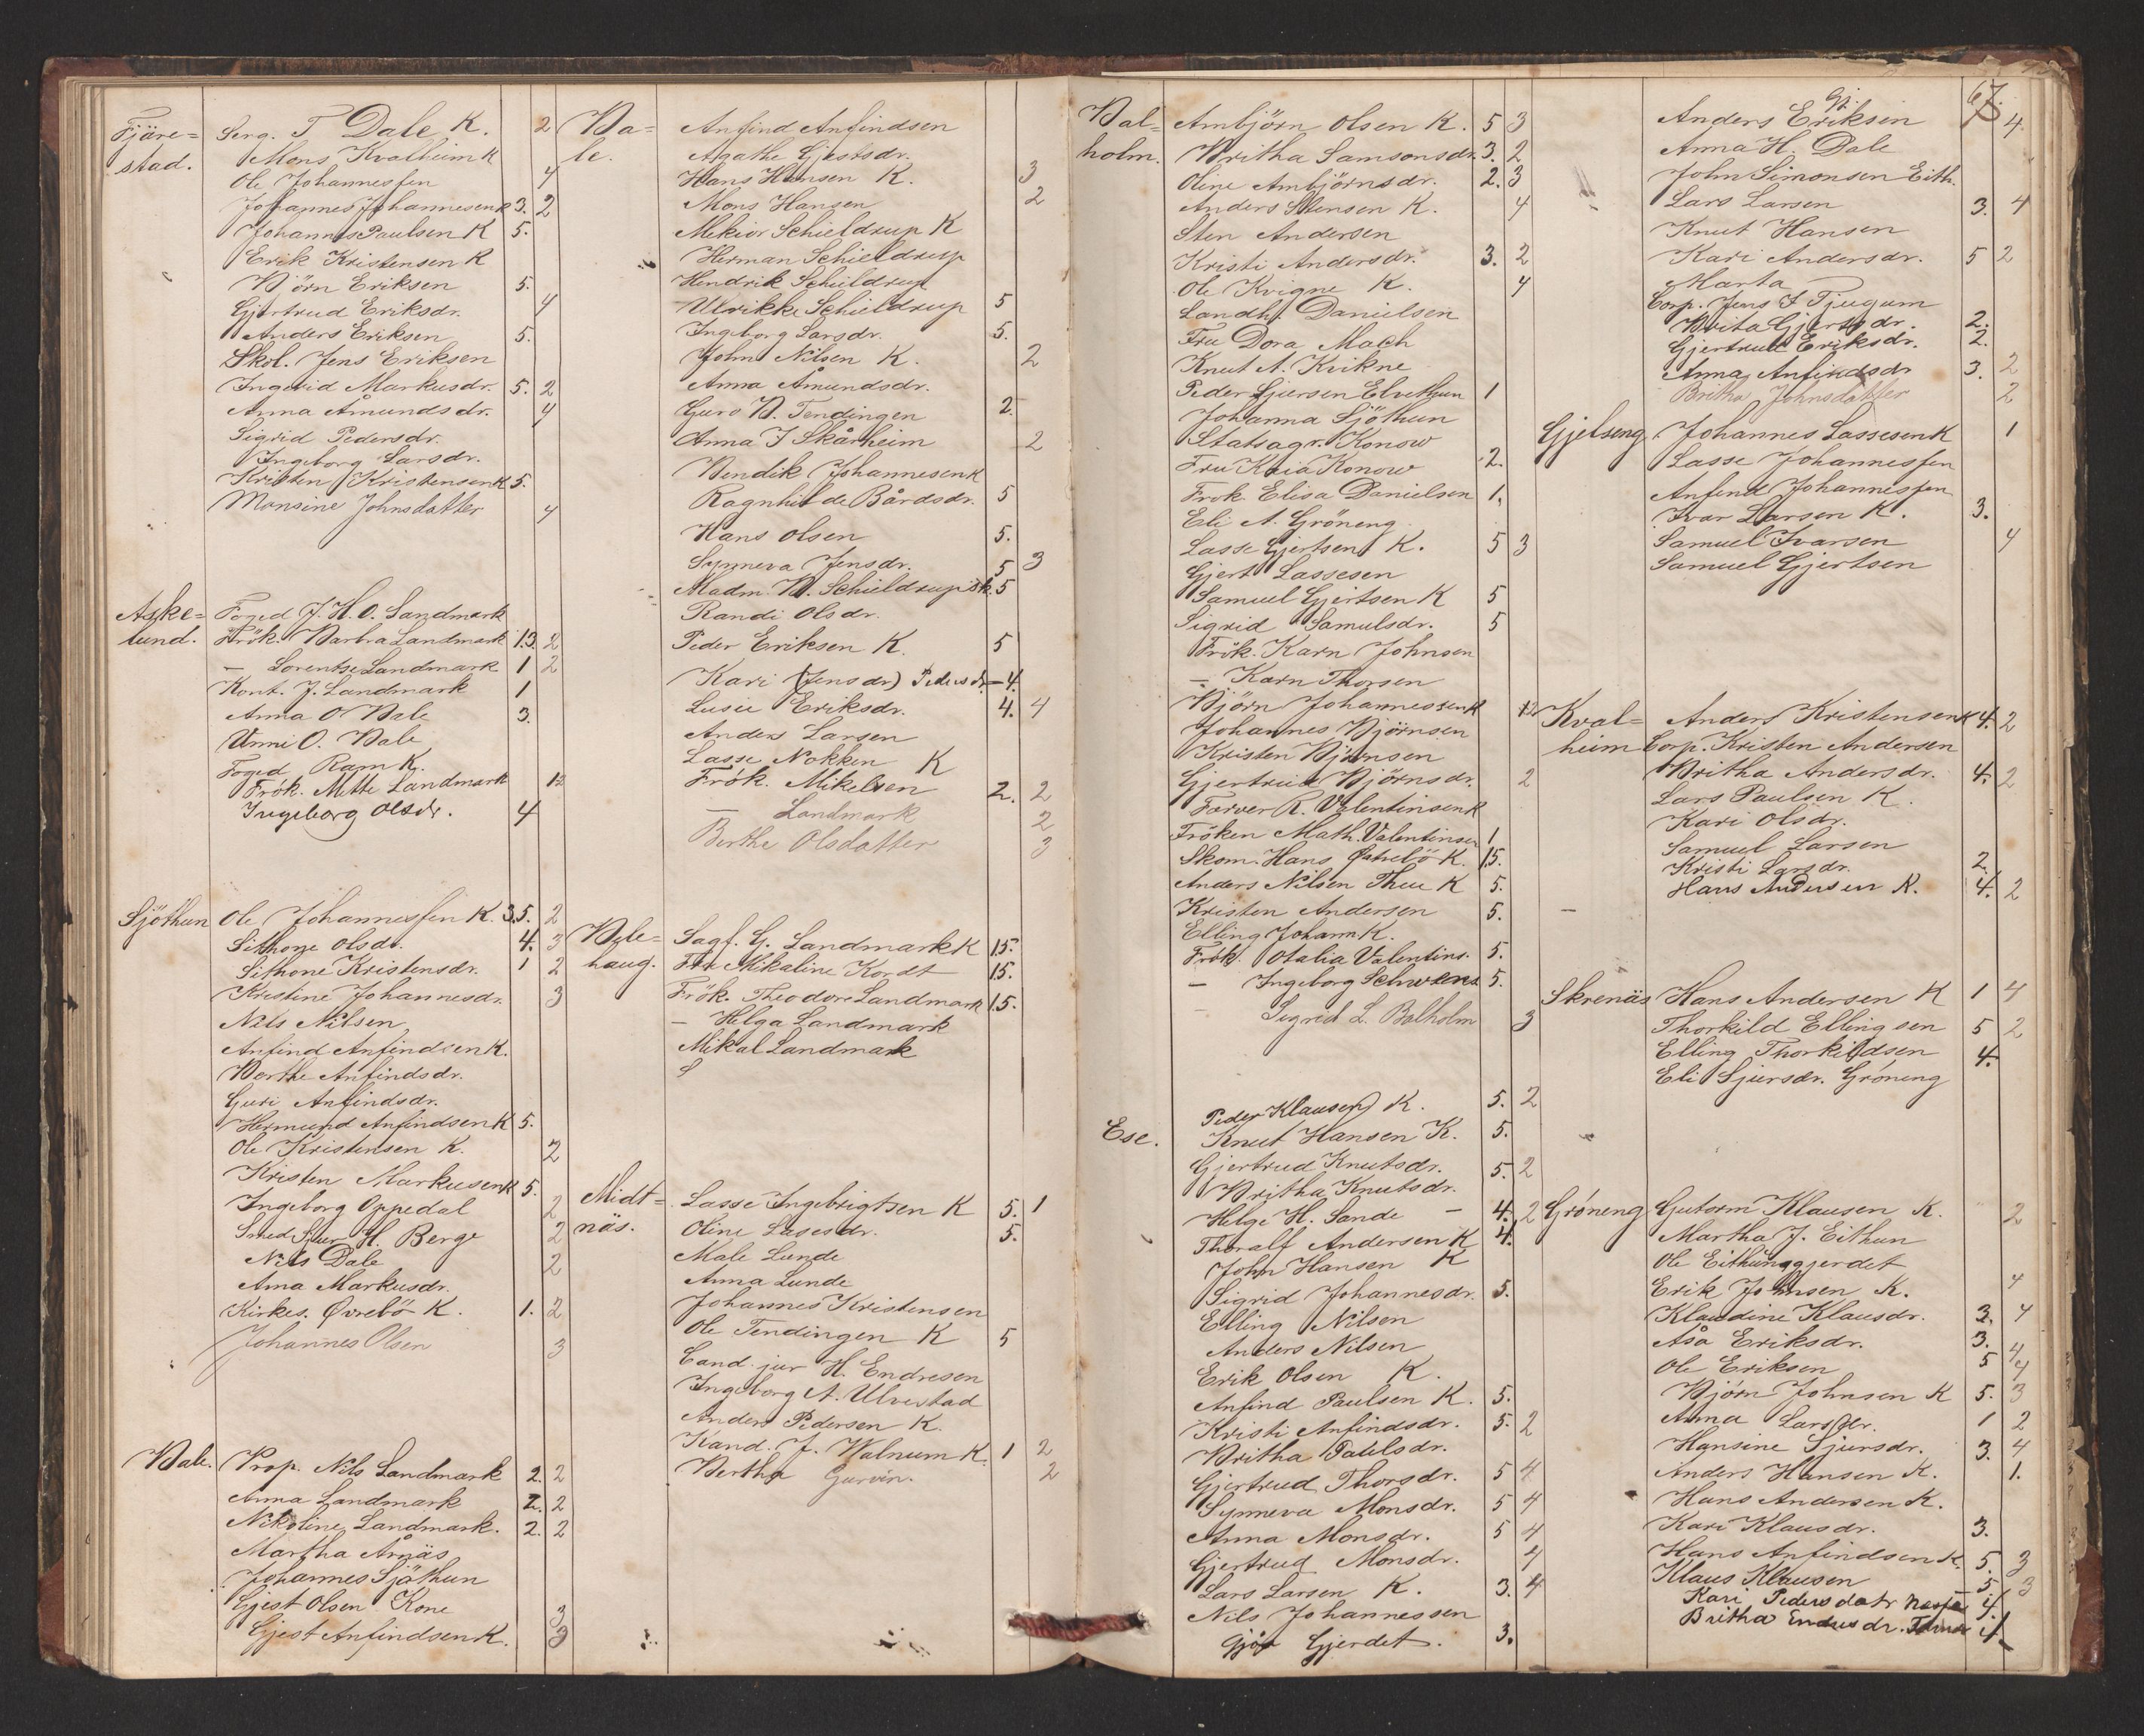 Fjäre=
stad.
Serg. T Dale K. 2
Mons Kvalheim K
Ole Johannessen 4
Johannes Johannesen K 3. 2
Johannes Paulsen K 5.
Erik Kristensen K
Björn Eriksen 5.
Gjertrud Eriksdr. 4
Anders Eriksen 5.
Skol. Jens Eriksen
Ingerid Markusdr. 5. 2
Anna Åmundsdr. 4
Sigrid Pedersdr.
Ingeborg Larsdr.
Kristen Kristensen K 5.
Monsine Johnsdatter 4
Aske=
lund.
Foged J. H. O. Landmark
Frök. Barbra Landmark 13. 2
— Lorentse Landmark 1 2
Kont. J. Landmark 1
Anna O Bale 3.
Unni O. Bale
Foged Ram K.
Frök. Mette Landmark 12
Ingeborg Olsdr. 4
Sjöthun
Ole Johannessen K. 3.5. 2
Sithone Olsdr. 4. 3
Sithone Kristensdr. 1 2
Kristine Johannesdr. 3
Nils Nilsen
Anfind Anfindsen K.
Berthe Anfindsdr.
Guri Anfindsdr.
Hermund Anfindsen K 5.
Ole Kristensen K. 2
Kristen Markusen K 5.
Ingeborg Oppedal 2
Smed Sjur H. Berge 2
Nils Dale 2
Anna Markusdr.
Kirkes. Øvrebö K. 1. 2
Johannes Olsen 3
Bale.
Prop. Nils Landmark 2. 2
Anna Landmark 2. 2
Nikoline Landmark. 2. 2
Martha Årnäs
Johannes Sjöthun
Gjest Olsen Kone 3
Gjest Anfindsen K. 3
Ba=
le.
Anfind Anfindsen
Agathe Gjestsdr.
Hans Hansen K. 3
Mons Hansen 2
Mekior Schieldrup K
Herman Schieldrup
Hendrik Schieldrup
Ulrikke Schieldrup 5
Ingeborg Larsdr. 5.
John Nilsen K. 2
Anna Åmundsdr.
Guro B. Tendingen 2.
Anna J Skårheim 2
Bendik Johannesen K
Ragnhilde Bårdsdr. 5
Hans Olsen 5.
Synneva Jensdr. 5 3
Madm. B. Schieldrup 5
Randi Olsdr.
Peder Eriksen K. 5
Kari (Jensdr) Pedersdr — 4.
Lusie Eriksdr. 4. 4
Anders Larsen
Lasse Nokken K
Frök. Mikelsen 2. 2
— Landmark 2
Berthe Olsdatter 3
Bale=
haug.
Sagf. G. Landmark K 15.
Fru Mikaline Kordt 15.
Frök. Theodore Landmark 15.
— Helga Landmark
Mikal Landmark
Midt=
näs.
Lasse Ingebrigtsen K 5. 1
Oline Lasesdr. 5.
Male Lunde
Anna Lunde
Johannes Kristensen
Ole Tendingen K 5
Cand. jur H. Endresen
Ingeborg A. Ulvestad
Anders Pedersen K.
Kand. J. Walnum K. 1 2
Bertha Gurvin. 2
Bal=
holm.
Ambjörn Olsen K. 5 3
Britha Samsonsdr. 3. 2
Oline Ambjörnsdr. 2. 3
Anders Stensen K. 4
Sten Andersen
Kristi Andersdr. 3. 2
Ole Kvigne K. 4
Landh. Danielsen
Fru Dora Mach
Knut A. Kvikne
Peder Sjursen Elvethun 1
Johanna Sjöthun
Statsagr. Konow
Fru Kaia Konow 2.
Frok. Elisa Danielsen 1.
Eli A. Gröneng
Lasse Gjertsen K. 5 3
Gjert Lassesen
Samuel Gjertsen K 5
Sigrid Samulsdr. 5
Frök. Karn Johnsen
— Karn Thorsen
Björn Johannessen K 12
Johannes Björnsen
Kristen Björnsen
Gjertrud Björnsdr. 2
Farver R. Valentinsen K
Fröken Math. Valentinsen 1
Skom. Hans Østrebö K. 15.
Anders Nilsen Thue K 5.
Kristen Andersen 5.
Elling Johann K.
Frök. Otalia Valentins. 5.
— Ingeborg Schwens 5.
Sigrid L. Balholm 3
Ese.
Peder Klausen K. 5. 2
Knut Hansen K. 5.
Gjertrud Knutsdr. 5. 2
Britha Knutsdr.
Helge H. Sande — 4. 2
Thoralf Andersen K 4.
John Hansen K
Sigrid Johannesdr. 5.
Elling Nilsen
Anders Nilsen
Erik Olsen K.
Anfind Paulsen K. 5.
Kristi Anfindsdr. 5. 2
Britha Paulsdr.
Gjertrud Thorsdr. 5 4
Synneva Monsdr. 5 4
Anna Monsdr. 5 4
Gjertrud Monsdr. 4
Lars Larsen K. 3. 4
Nils Johannessen
Gjör Gjerdet. 3.
67.
Anders Eriksen 4
Anna H. Dale
John Simonsen Eith.
Lars Larsen 3. 4
Knut Hansen
Kari Andersdr. 5 2
Marta
Corp. Jens J Tjugum
Brita Gjertsdr. 2.
Gjertrud Eriksdr. 2.
Anna Anfindsdr 3. 2
Britha Johnsdatter 2
Gjelseng
Johannes Lassesen K 1
Lasse Johannessen
Anfind Johannessen
Ivar Larsen K. 3.
Samuel Ivarsen 4
Samuel Gjertsen
Kval=
heim
Anders Kristensen K 4. 2
Corp. Kristen Andersen
Britha Andersdr. 4. 2
Lars Paulsen K.
Kari Olsdr.
Samuel Larsen
Kristi Larsdr. 2.
Hans Andersen K. 4. 2
Skrenäs
Hans Andersen K 1 4
Thorkild Ellingsen 5 2
Elling Thorkildsen 4.
Eli Sjursdr. Gröneng
Gröneng
Gutorm Klausen K. 2
Martha J. Eithun
Ole Eithunggjerdet
Erik Johnsen K. 4
Klaudine Klausdr. 3. 4
Åså Eriksdr. 3. 4
Ole Eriksen 5 4
Björn Johnsen K 5. 3
Anna Larsdr. 1 2
Hansine Sjursdr. 3. 4
Anders Hansen K. 1.
Hans Andersen K.
Kari Klausdr. 3.
Hans Anfindsen K. 5. 3
Klaus Klausen 5 3
Kari Pedersdatr 4.
Britha Endresdr. 4